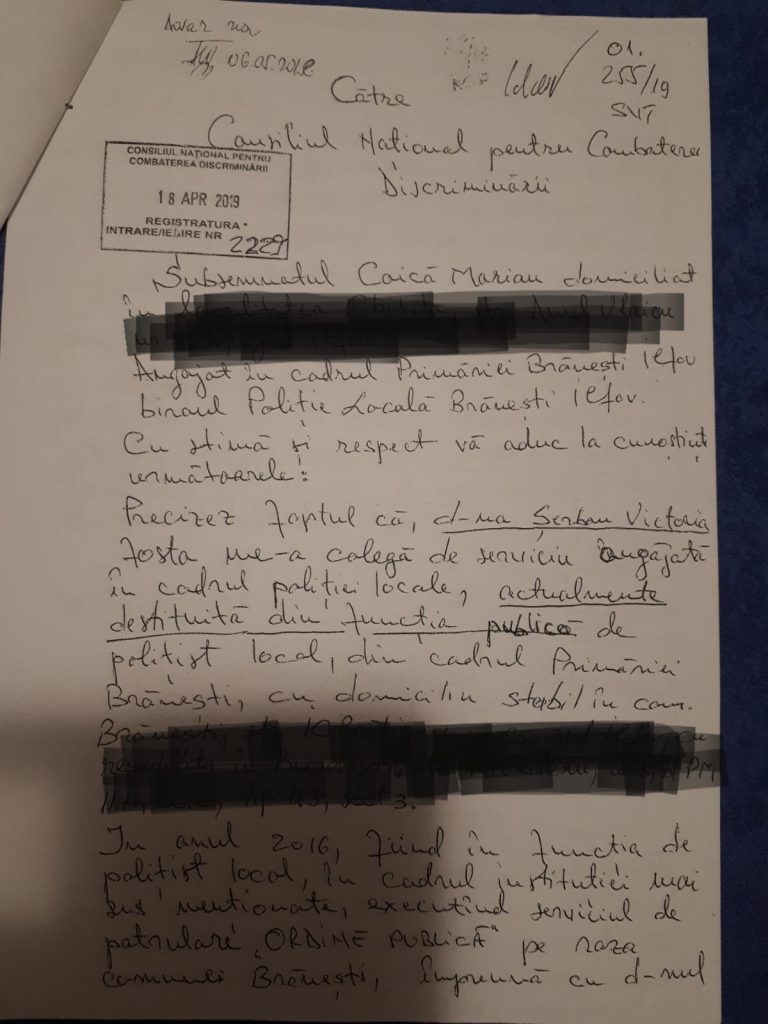 06.05.2019
01.
255/19
SVT
Către
Consiliul National pentru Combaterea
Discriminării
CONSILIUL NAŢIONAL PENTRU
COMBATEREA DISCRIMINĂRII
18 APR 2019
REGISTRATURA
INTRARE/IEŞIRE NR 2229
Subsemnatul Coică Marian domiciliat
în
Angajat în cadrul Primăriei Brănești Ilfov
biroul Poliție Locală Brănești Ilfov.
Cu stimă și respect vă aduc la cunoștință
următoarele:
Precizez faptul că, d-na Șerban Victoria
fosta me-a colegă de serviciu angajată
în cadrul poliției locale, actualmente
destituită din funcția publică de
polițist local, din cadrul Primăriei
Brănești, cu domiciliu stabil în com.
Brănești,
În anul 2016, fiind în funcția de
polițist local, în cadrul instituției mai
sus menționate, executînd serviciul de
patrulare „ORDINE PUBLICĂ" pe raza
comunei Brănești, împreună cu d-nul